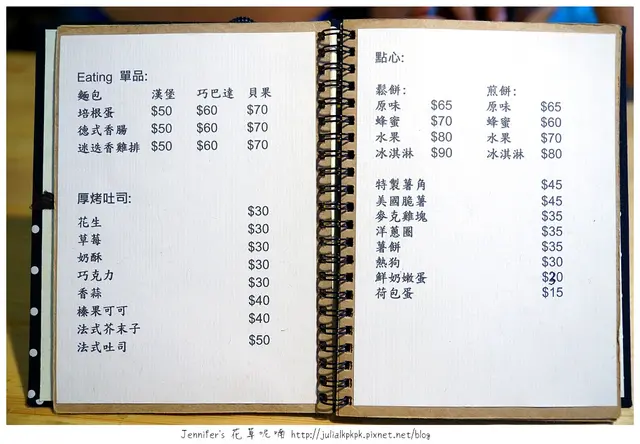 Eating 單品:
麵包 漢堡 巧巴達 貝果
培根蛋 $50 $60 $70
德式香腸 $50 $60 $70
迷迭香雞排 $50 $60 $70
厚烤吐司:
花生 $30
草莓 $30
奶酥 $30
巧克力 $30
香蒜 $30
榛果可可 $40
法式芥末子 $40
法式吐司 $50
點心:
鬆餅: 煎餅:
原味 $65 原味 $65
蜂蜜 $70 蜂蜜 $60
水果 $80 水果 $70
冰淇淋 $90 冰淇淋 $80
特製薯角 $45
美國脆薯 $45
麥克雞塊 $35
洋蔥圈 $35
薯餅 $35
熱狗 $30
鮮奶嫩蛋 $30
荷包蛋 $15
Jennifer's 花草呢喃 http://julialkpkpk.pixnet.net/blog